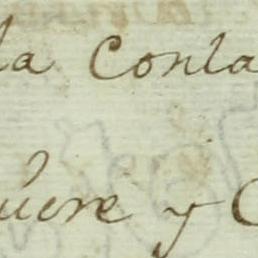 la Conta
uiere y C